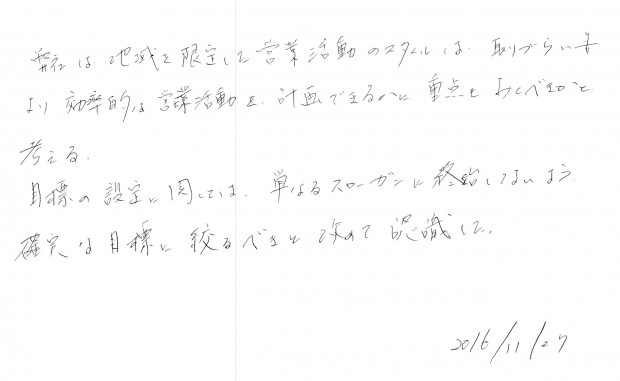 弊社は地域を限定した営業活動のスタイルは、取りづらいが
より効率的な営業活動を、計画できるかに重点をおくべきかと
考える。
目標の設定に関しては、単なるスローガンに終始しないよう
確実な目標に絞るべきと改めて認識した。
2016/11/27